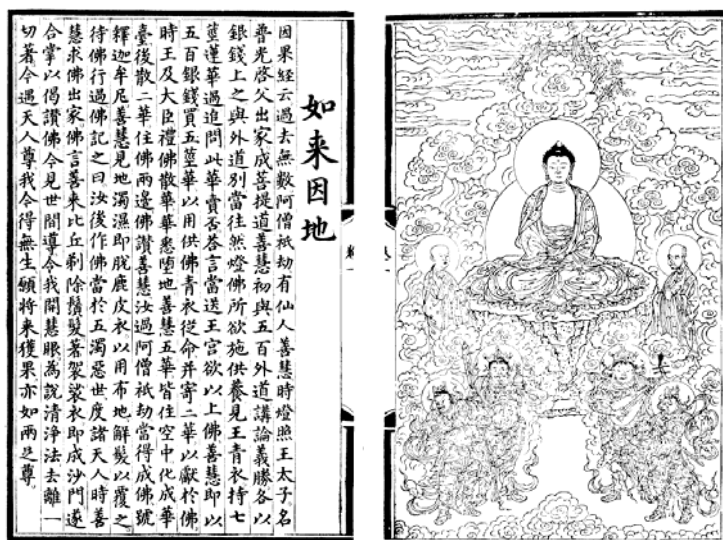 如来因地
因果經云過去無數阿僧祇劫有仙人善慧時燈照王太子名
普光啓父出家成菩提道善慧初與五百外道講論義勝各以
銀錢上之與外道別當往然燈佛所欲施供養見王青衣持七
莖蓮華過追問此華賣否荅言當送王宮欲以上佛善慧即以
五百銀錢買五莖華以用供佛青衣從命并寄二華以獻於佛
時王及大臣禮佛散華華悉墮地善慧五華皆住空中化成華
臺後散二華住佛兩邊佛讚善慧汝過阿僧祇劫當得成佛號
釋迦牟尼善慧見地濁濕即脫鹿皮衣以用布地解髮以覆之
待佛行過佛記之曰汝後作佛當於五濁惡世度諸天人時善
慧求佛出家佛言善来比丘剃除鬚髮著袈裟衣即成沙門遂
合掌以偈讚佛今見世間導令我開慧眼為說清淨法去離一
切著今遇天人尊我令得無生願將来獲果亦如兩足尊